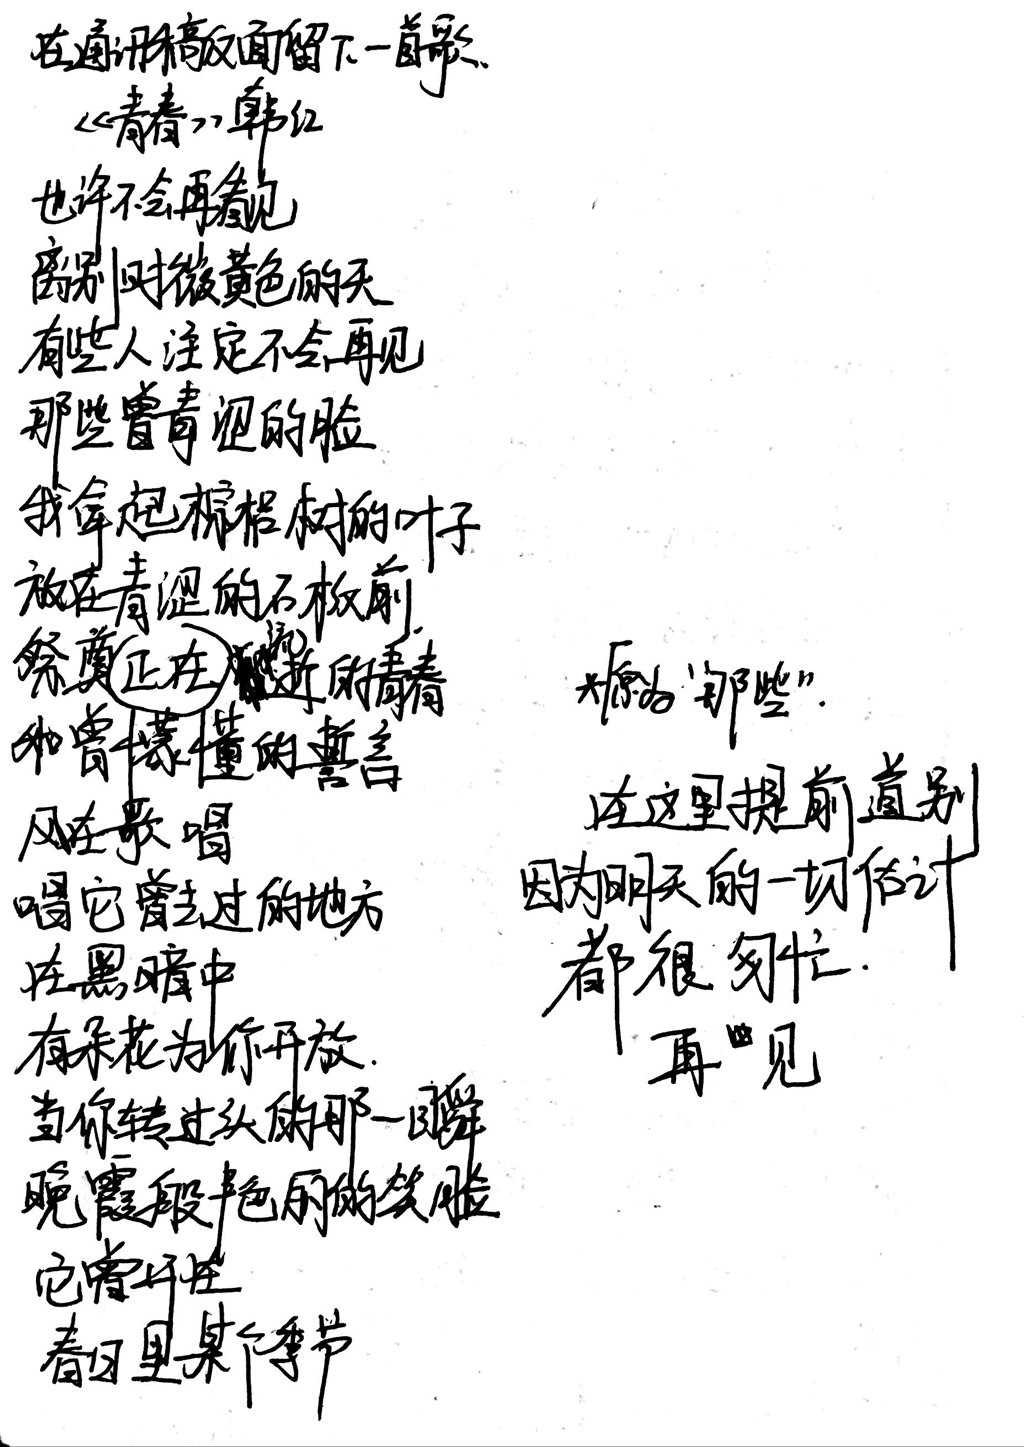 在通讯稿反面留下一首歌.
《青春》韩红
也许不会再看见
离别时微黄色的天
有些人注定不会再见
那些曾青涩的脸
我拿起棕榈树的叶子
放在青涩的石板前
祭奠正在流逝的青春
和曾懵懂的誓言
风在歌唱
唱它曾去过的地方
在黑暗中
有朵花为你开放.
当你转过头的那一瞬
晚霞般绝色的笑脸
它曾开在
春日里某个季节
*原为"那些".
在这里提前道别
因为明天的一切估计
都很匆忙.
再见